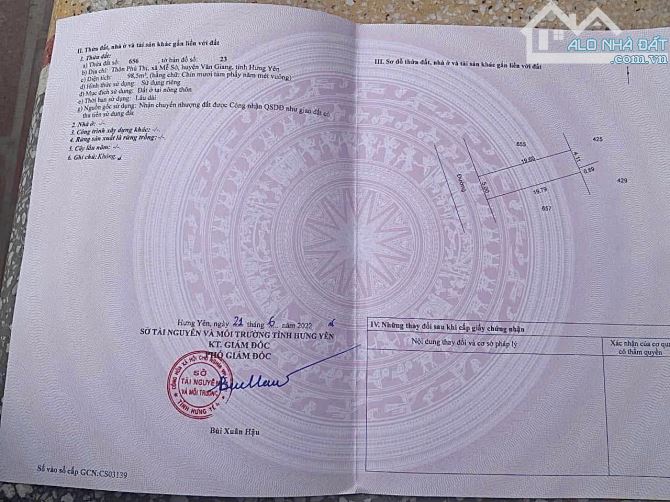 II. Thửa đất, nhà ở và tài sản khác gắn liền với đất
1. Thửa đất:
a) Thửa đất số: 656, tờ bản đồ số: 23
b) Địa chỉ: Thôn Phú Thị, xã Mễ Sở, huyện Văn Giang, tỉnh Hưng Yên
c) Diện tích: 98,5m², (bằng chữ: Chín mươi tám phẩy năm mét vuông)
d) Hình thức sử dụng: Sử dụng riêng
đ) Mục đích sử dụng: Đất ở tại nông thôn
e) Thời hạn sử dụng: Lâu dài
g) Nguồn gốc sử dụng: Nhận chuyển nhượng đất được Công nhận QSDĐ như giao đất có
thu tiền sử dụng đất
2. Nhà ở: -/-
3. Công trình xây dựng khác: -/-
4. Rừng sản xuất là rừng trồng: -/-
5. Cây lâu năm: -/-
6. Ghi chú: Không.
Hưng Yên, ngày 21 tháng 6 năm 2022
SỞ TÀI NGUYÊN VÀ MÔI TRƯỜNG TỈNH HƯNG YÊN
KT. GIÁM ĐỐC
PHÓ GIÁM ĐỐC
CỘNG HÒA XÃ HỘI CHỦ NGHĨA
SỞ
TÀI NGUYÊN
VÀ MÔI TRƯỜNG
TỈNH HƯNG YÊN
Bùi Xuân Hậu
Số vào sổ cấp GCN:CS03139
ALO NHÀ ĐẤT
III. Sơ đồ thửa đất, nhà ở và tài sản khác gắn liền với đất
655
425
19.65
4.11
0.89
429
Đường
5.00
19.79
657
IV. Những thay đổi sau khi cấp giấy chứng nhận
Nội dung thay đổi và cơ sở pháp lý
Xác nhận của cơ qu
có thẩm quyền